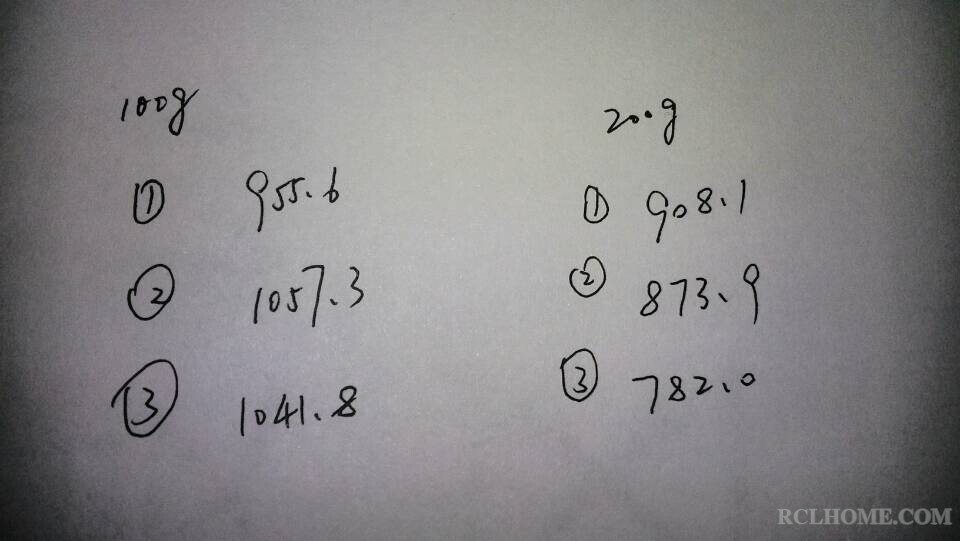 100g
① 955.6
② 1057.3
③ 1041.8
200g
① 908.1
② 873.9
③ 782.0
RCLHOME.COM